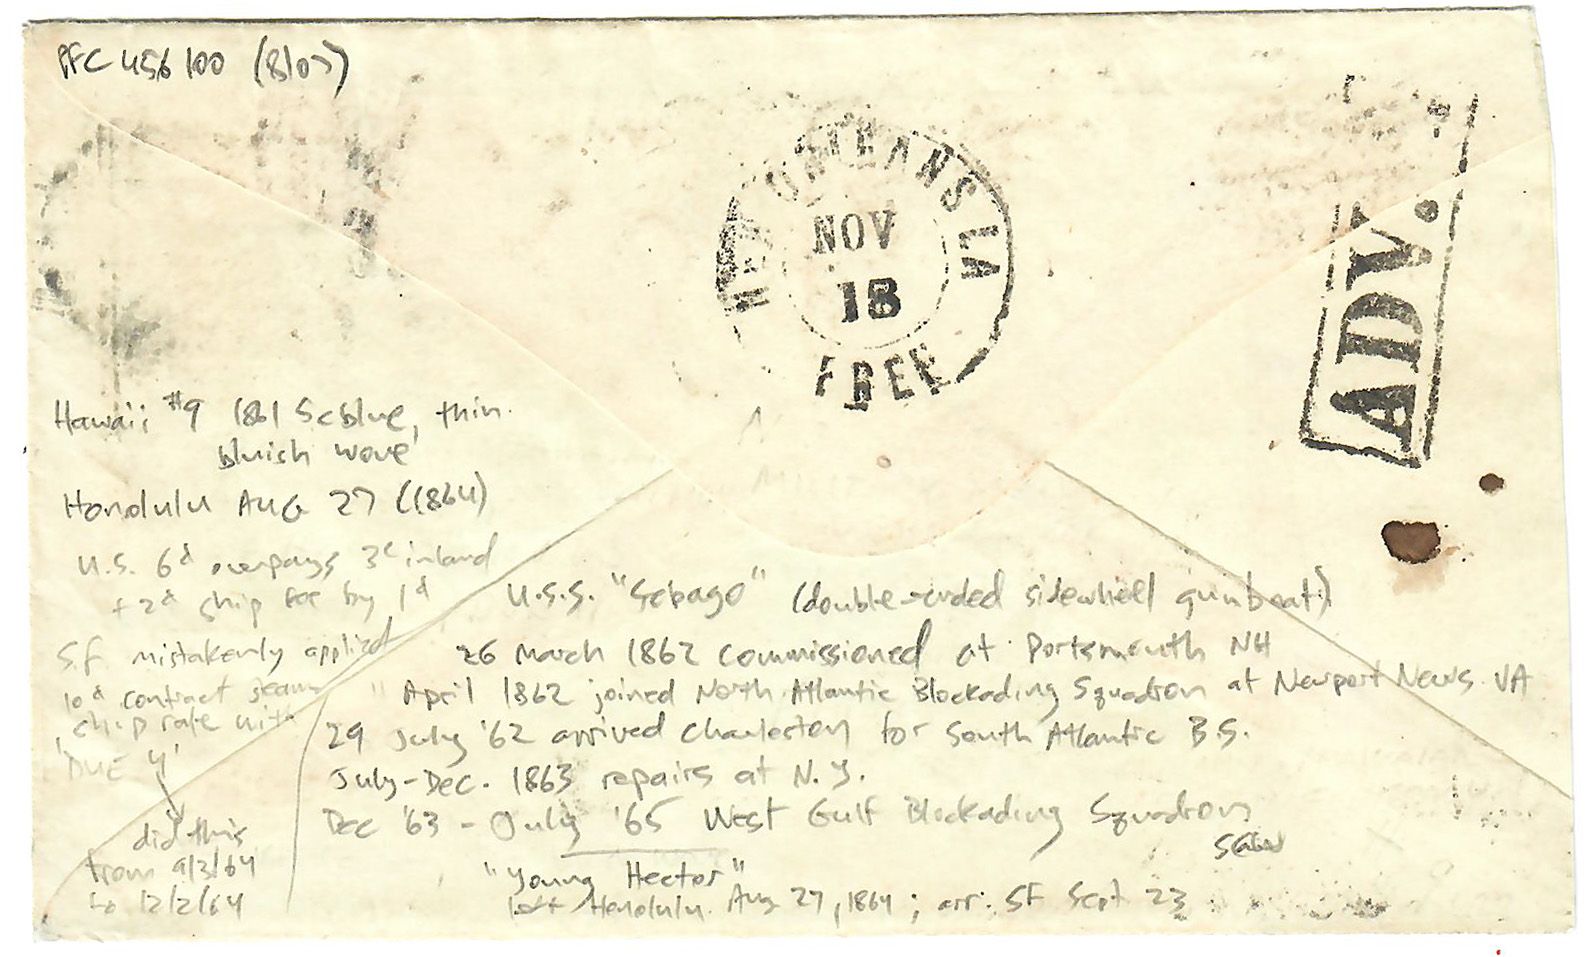 PFC 456100 (8/05)
NEW ORLEANS LA
NOV
18
FREE
ADV.
Hawaii #9 1861 5c blue, thin
bluish wove
Honolulu Aug 27 (1864)
U.S. 6¢ overpays 3¢ inland
+ 2¢ ship fee by 1¢
S.F. mistakenly applied
10¢ contract steam
ship rate with
'DUE 4'
did this
from 9/3/64
to 12/2/64
U.S.S. "Sebago" (double-ended sidewheel gunboat)
26 March 1862 commissioned at Portsmouth NH
" April 1862 joined North Atlantic Blockading Squadron at Newport News VA
29 July '62 arrived Charleston for South Atlantic B.S.
July-Dec. 1863 repairs at N.Y.
Dec '63 - July '65 West Gulf Blockading Squadron
"Young Hector"
left Honolulu Aug 27, 1864; arr. SF Sept 23